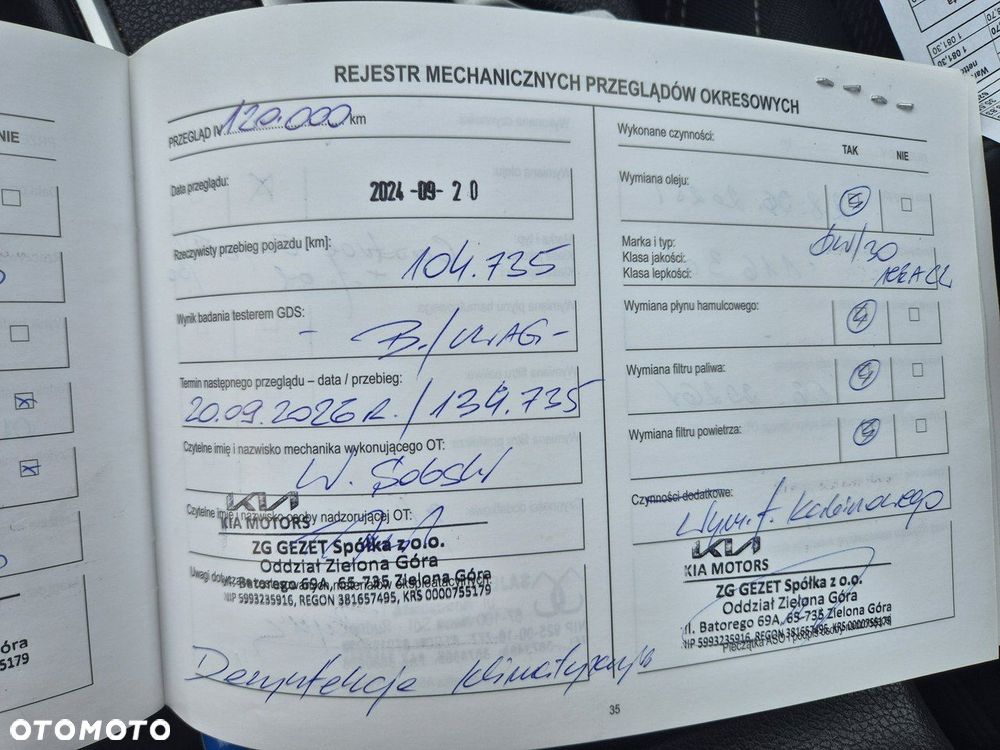 REJESTR MECHANICZNYCH PRZEGLĄDÓW OKRESOWYCH
PRZEGLĄD IV 120.000 km
Data przeglądu:
2024-09-20
Rzeczywisty przebieg pojazdu [km]:
104.735
Wynik badania testerem GDS:
- B./UWAG -
Termin następnego przeglądu – data / przebieg:
20.09.2026 R. / 134.735
Czytelne imię i nazwisko mechanika wykonującego OT:
W. Sobski
Czytelne imię i nazwisko osoby nadzorującej OT:
KIA
KIA MOTORS
ZG GEZET Spółka z o.o.
Oddział Zielona Góra
ul. Batorego 69A, 65-735 Zielona Góra
NIP 5993235916, REGON 381657495, KRS 0000755179
Dezynfekcja klimatyzacji
Wykonane czynności:
TAK NIE
Wymiana oleju:
Marka i typ:
Klasa jakości:
Klasa lepkości:
0W/30
Wymiana płynu hamulcowego:
Wymiana filtru paliwa:
Wymiana filtru powietrza:
Czynności dodatkowe:
Wym. f. kabinowego
KIA
KIA MOTORS
ZG GEZET Spółka z o.o.
Oddział Zielona Góra
ul. Batorego 69A, 65-735 Zielona Góra
NIP 5993235916, REGON 381657495, KRS 0000755179
Pieczątka ASO i podpis osoby
35
NIE
óra
5179
1 081,30
1 081,30
netto
OTOMOTO